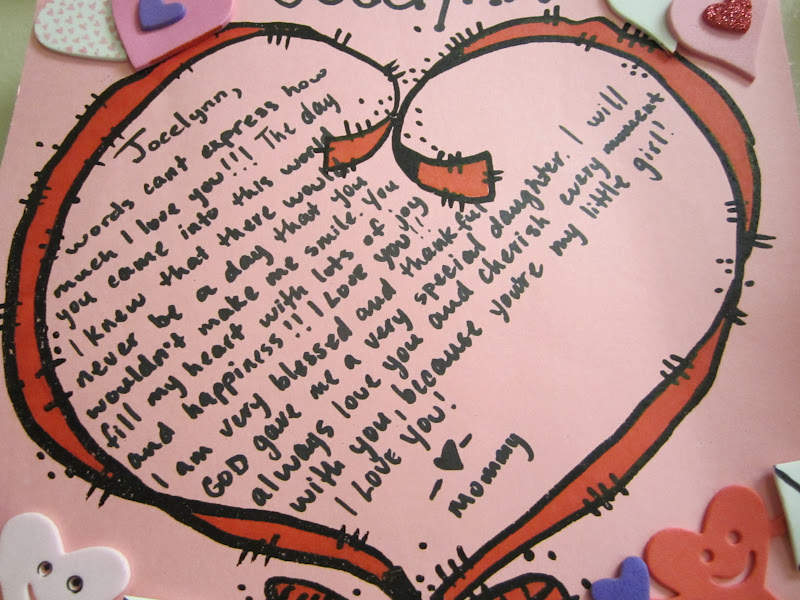 Jocelynn,
words cant express how
much I love you!!! The day
you came into this world
I knew that there would
never be a day that you
wouldn't make me smile. You
fill my heart with lots of joy
and happiness!! I Love you!!
I am very blessed and thankful
GOD gave me a very special daughter. I will
always love you and cherish every moment
with you, because you're my little girl!
I LOVE YOU!
Mommy